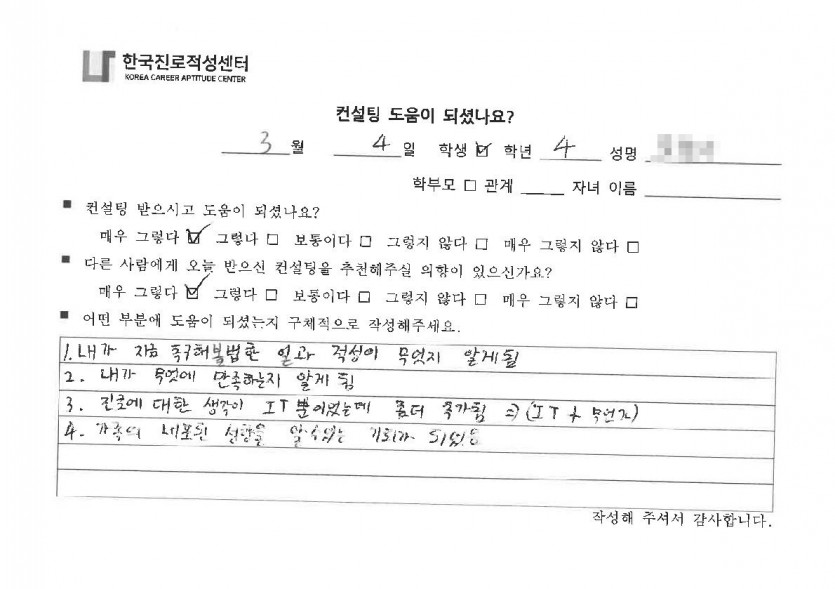 한국진로적성센터
KOREA CAREER APTITUDE CENTER
컨설팅 도움이 되셨나요?
3 월 4 일 학생 ☑ 학년 4 성명
학부모 □ 관계 ____ 자녀 이름
■ 컨설팅 받으시고 도움이 되셨나요?
매우 그렇다 ☑ 그렇다 □ 보통이다 □ 그렇지 않다 □ 매우 그렇지 않다 □
■ 다른 사람에게 오늘 받으신 컨설팅을 추천해주실 의향이 있으신가요?
매우 그렇다 ☑ 그렇다 □ 보통이다 □ 그렇지 않다 □ 매우 그렇지 않다 □
■ 어떤 부분에 도움이 되셨는지 구체적으로 작성해주세요.
1. 내가 일과 적성이 무엇지 알게됨
2. 내가 무엇에 만족하는지 알게 됨
3. 진로에 대한 생각이 IT 뿐이었는데 좀더 추가됨 => (IT + 무언가)
4. 가족의 성향을 알수있는 기회가 되었음
작성해 주셔서 감사합니다.